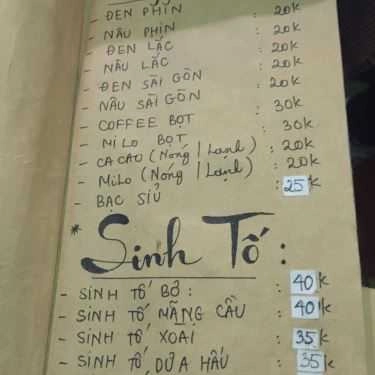 - ĐEN PHIN : 20k
- NÂU PHIN : 20k
- ĐEN LẮC : 20k
- NÂU LẮC : 20k
- ĐEN SÀI GÒN : 20k
- NÂU SÀI GÒN : 20k
- COFFEE BỌT : 30k
- MILO BỌT : 30k
- CA CAO (Nóng | Lạnh) : 20k
- MiLo (Nóng | Lạnh) : 20k
- BẠC SỈU : 25k
* Sinh Tố :
- SINH TỐ BƠ : 40k
- SINH TỐ MÃNG CẦU : 40k
- SINH TỐ XOÀI : 35k
- SINH TỐ DƯA HẤU : 35k